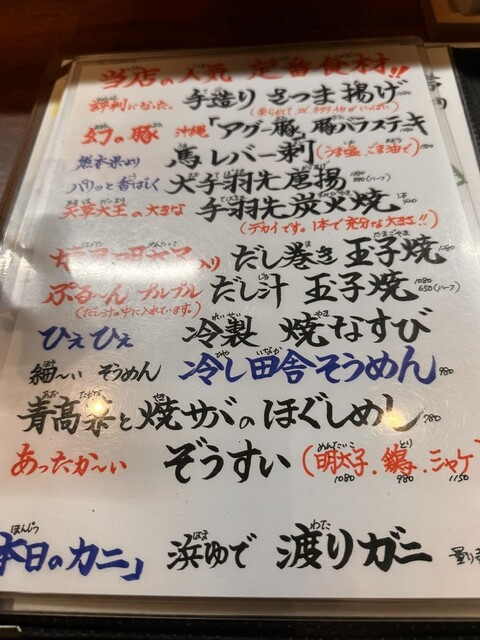 当店の人気 定番食材!!
評判になった。 手造り さつま揚げ
幻の豚 沖縄「アグー豚」豚バラステキ
熊本県より 馬レバー刺 (うま塩、ごま油で)
パリッと香ばしく 大手羽先唐揚 (ハーフ)
天草大王の大きな 手羽先炭火焼 1本
(デカイです。1本で充分な大きさ!!)
明太子入り だし巻き 玉子焼 1280
ぷる〜ん プルプル だし汁 玉子焼 1080 650(ハーフ)
(だし汁の中に入れています。)
ひえひえ 冷製 焼なすび
細〜い そうめん 冷し田舎そうめん 980
青高菜と焼サバのほぐしめし 780
あったか〜い ぞうすい (明太子、鶏、シャケ)
1080 980 1150
本日のカニ」 浜ゆで 渡りガニ 量り